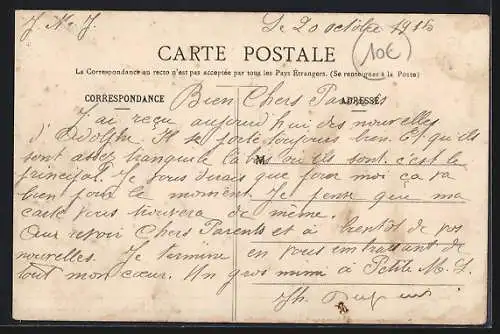 J. M. J.
Le 20 octobre 1915
10€
CARTE POSTALE
La Correspondance au recto n'est pas acceptée par tous les Pays Étrangers. (Se renseigner à la Poste)
CORRESPONDANCE
ADRESSE
Bien Chers Parents
J'ai reçu aujourd'hui des nouvelles
d'Adolphe. Il se porte toujours bien. Et qu'ils
sont assez tranquile là bas où ils sont. c'est le
principal. Je vous dirais que pour moi ça va
bien pour le moment. Je pense que ma
carte vous trouvera de même.
Au revoir Chers Parents et à bientôt de vos
nouvelles. Je termine en vous embrassant de
tout mon cœur. Un gros mimi à Petite M. L.
Jh.